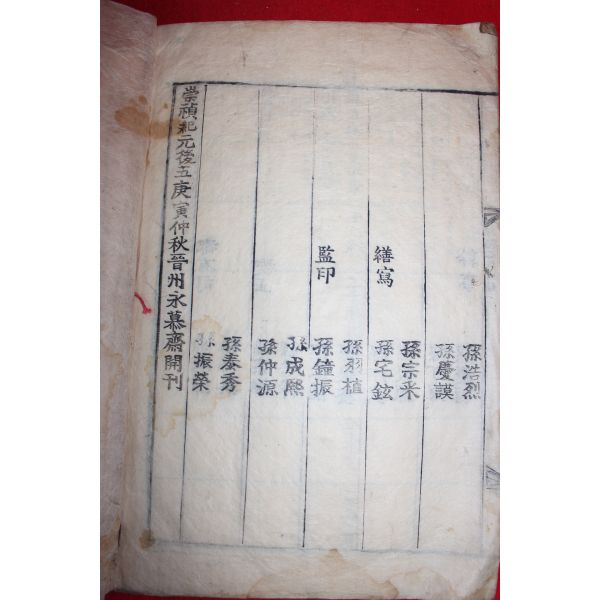 孫浩烈
孫慶謨
孫宗釆
繕寫 孫宅鉉
孫羽植
監印 孫鐘振
孫成熙
孫仲源
孫泰秀
孫振榮
崇禎紀元後五庚寅仲秋晉州永慕齋開刊